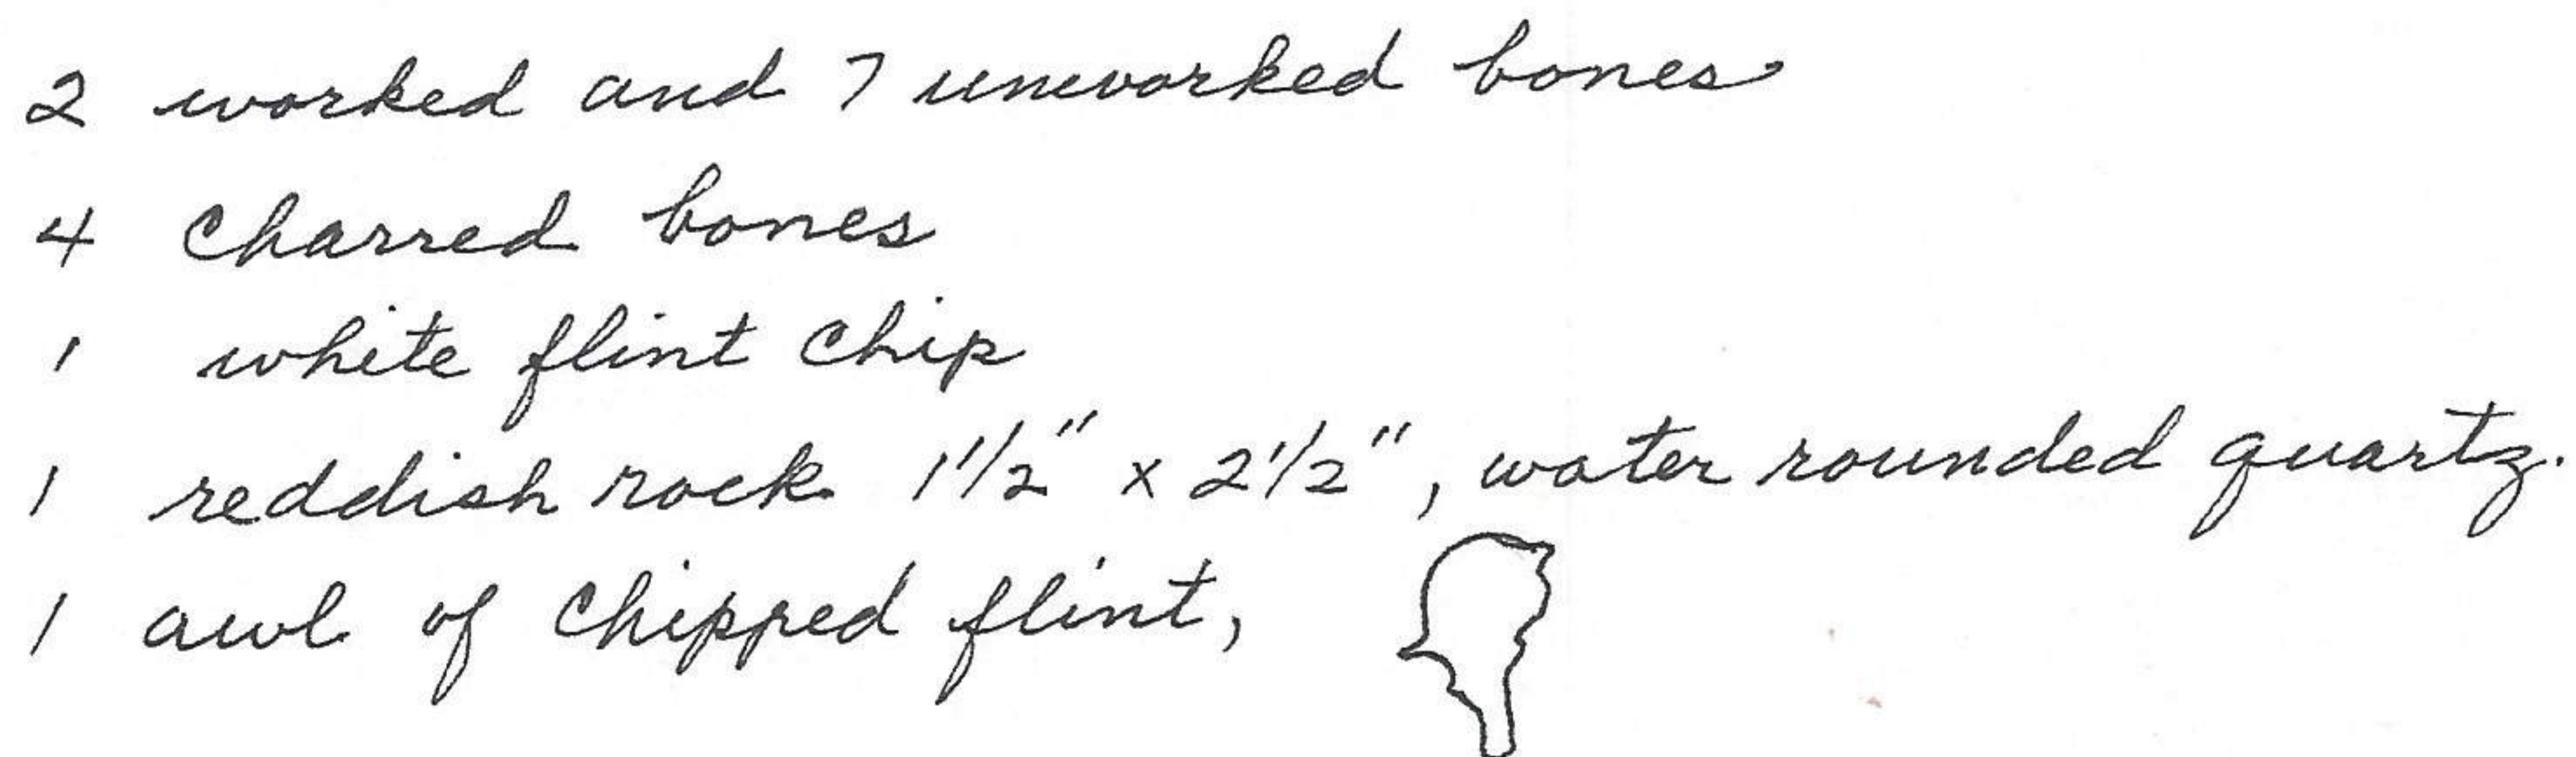 2 worked and 7 unworked bones
4 charred bones
1 white flint chip
1 reddish rock 1 1/2" x 2 1/2", water rounded quartz.
1 awl of chipped flint,